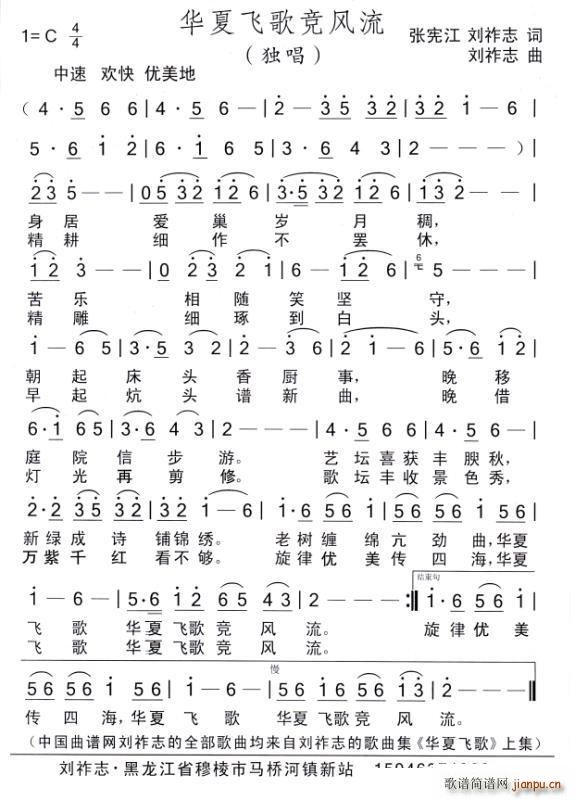 华夏飞歌竞风流
1=C 4/4
(独唱)
张宪江 刘祚志 词
刘祚志 曲
中速 欢快 优美地
(4·5 6 6|4·5 6 6|2—35 32|1—6|
5·6 1 2|6·1 6 5|3·6 4 3|2———)|
23 5——|05 32 12 6|3·5 32 12 6|132——|
身居 爱巢岁月稠,
精耕 细作不罢休,
12 3——|0 2 23 21|6—126|5———|
苦乐 相随笑坚守,
精雕 细琢到白头,
1—65|3·2 35|2 1—6|5·6 12|
朝起床头香厨事,晚移
早起炕头谱新曲,晚借
6·1 65|3·6 43|2———|4·5 66|2—6—|
庭院信步游。 艺坛喜获丰腴秋,
灯光再剪修。 歌坛丰收景色秀,
2·2 35|2 32 1—|1·6 56 1|56 56 1 56|
新绿成诗铺锦绣。 老树缠绵亢劲曲,华夏
万紫千红看不够。 旋律优美传四海,华夏
结束句
1—6—|5·6 12 65 43|2———:|1·6 56 1|
飞歌 华夏飞歌竞风流。 旋律优美
飞歌 华夏飞歌竞风流。
慢
56 56 1 56|1—6—|56 156 56 13|2———|
传四海,华夏 飞歌 华夏飞歌竞风流。
(中国曲谱网刘祚志的全部歌曲均来自刘祚志的歌曲集《华夏飞歌》上集)
刘祚志·黑龙江省穆棱市马桥河镇新站
歌谱简谱网 jianpu.cn